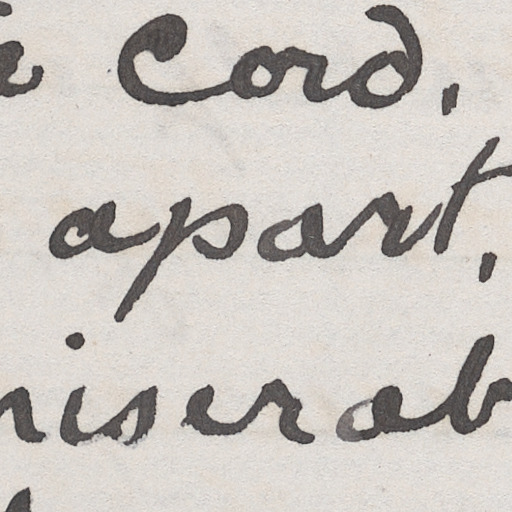 cord,
apart,
miserab